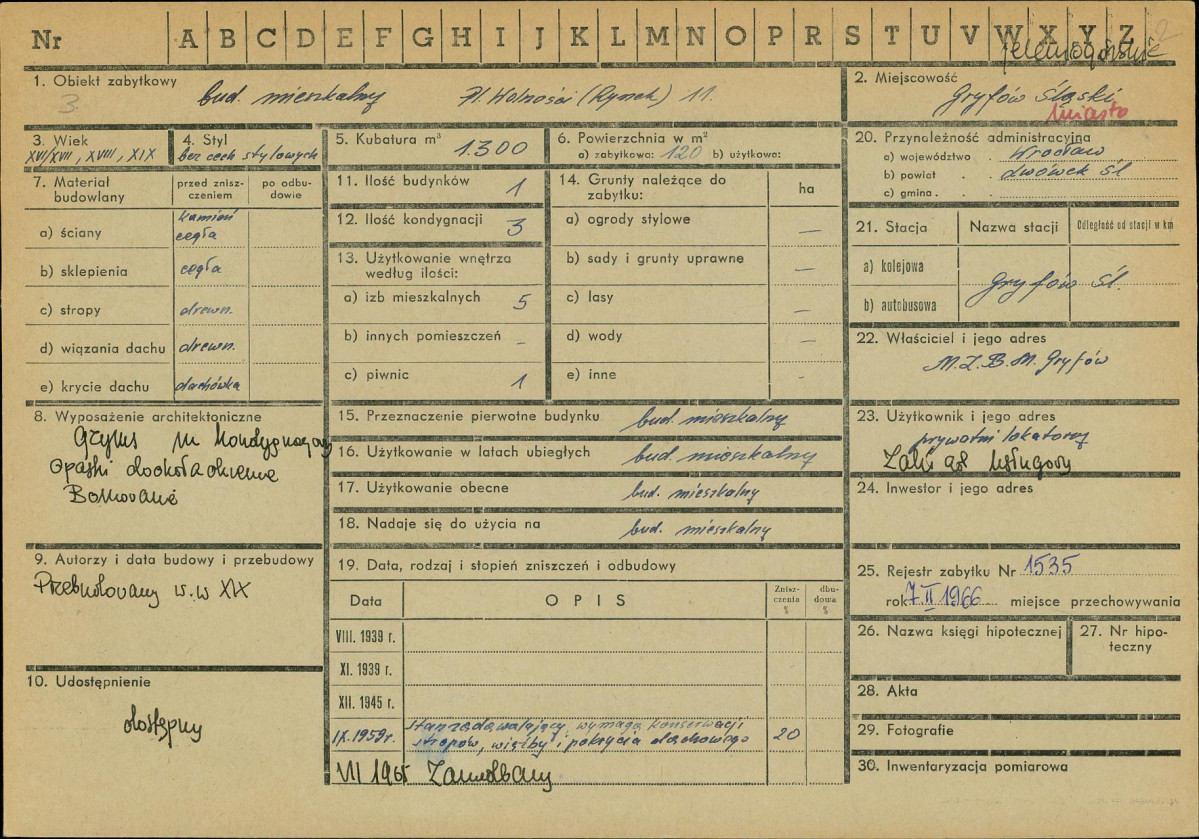 Nr A B C D E F G H I J K L M N O P R S T U V W X Y Z
2
jeleniogórskie
1. Obiekt zabytkowy
3
bud. mieszkalny Pl. Wolności (Rynek) 11.
2. Miejscowość
Gryfów Śląski
miasto
3. Wiek
XVI/XVII, XVIII, XIX
4. Styl
bez cech stylowych
5. Kubatura m³ 1.300
6. Powierzchnia w m²
a) zabytkowa: 120 b) użytkowa:
20. Przynależność administracyjna
a) województwo Wrocław
b) powiat Lwówek Śl
c) gmina
7. Materiał budowlany
przed zniszczeniem
po odbudowie
a) ściany kamień cegła
b) sklepienia cegła
c) stropy drewn.
d) wiązania dachu drewn.
e) krycie dachu dachówka
11. Ilość budynków 1
12. Ilość kondygnacji 3
13. Użytkowanie wnętrza
według ilości:
a) izb mieszkalnych 5
b) innych pomieszczeń -
c) piwnic 1
14. Grunty należące do
zabytku:
ha
a) ogrody stylowe —
b) sady i grunty uprawne —
c) lasy —
d) wody —
e) inne -
21. Stacja Nazwa stacji Odległość od stacji w km
a) kolejowa
b) autobusowa
Gryfów Śl.
22. Właściciel i jego adres
M.Z.B.M. Gryfów
8. Wyposażenie architektoniczne
Gzyms m kondygnacyj
opaski dookoła okienne
Boniowanie
15. Przeznaczenie pierwotne budynku bud. mieszkalny
16. Użytkowanie w latach ubiegłych bud. mieszkalny
17. Użytkowanie obecne bud. mieszkalny
18. Nadaje się do użycia na bud. mieszkalny
23. Użytkownik i jego adres
prywatni lokatorzy
Usługowy
24. Inwestor i jego adres
9. Autorzy i data budowy i przebudowy
Przebudowany w. XIX
19. Data, rodzaj i stopień zniszczeń i odbudowy
Data OPIS Zniszczenia % dbudowa %
VIII. 1939 r.
XI. 1939 r.
XII. 1945 r.
IX. 1959 r. stan zadawalający, wymaga konserwacji
stropów, więźby i pokrycia dachowego 20
VII 1965 Zaniedbany
25. Rejestr zabytku Nr 1535
rok 7 II 1966 miejsce przechowywania
26. Nazwa księgi hipotecznej
27. Nr hipoteczny
10. Udostępnienie
dostępny
28. Akta
29. Fotografie
30. Inwentaryzacja pomiarowa